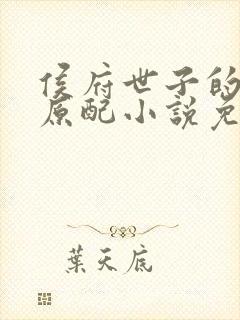 侯府世子的
原配小説免
葉天底